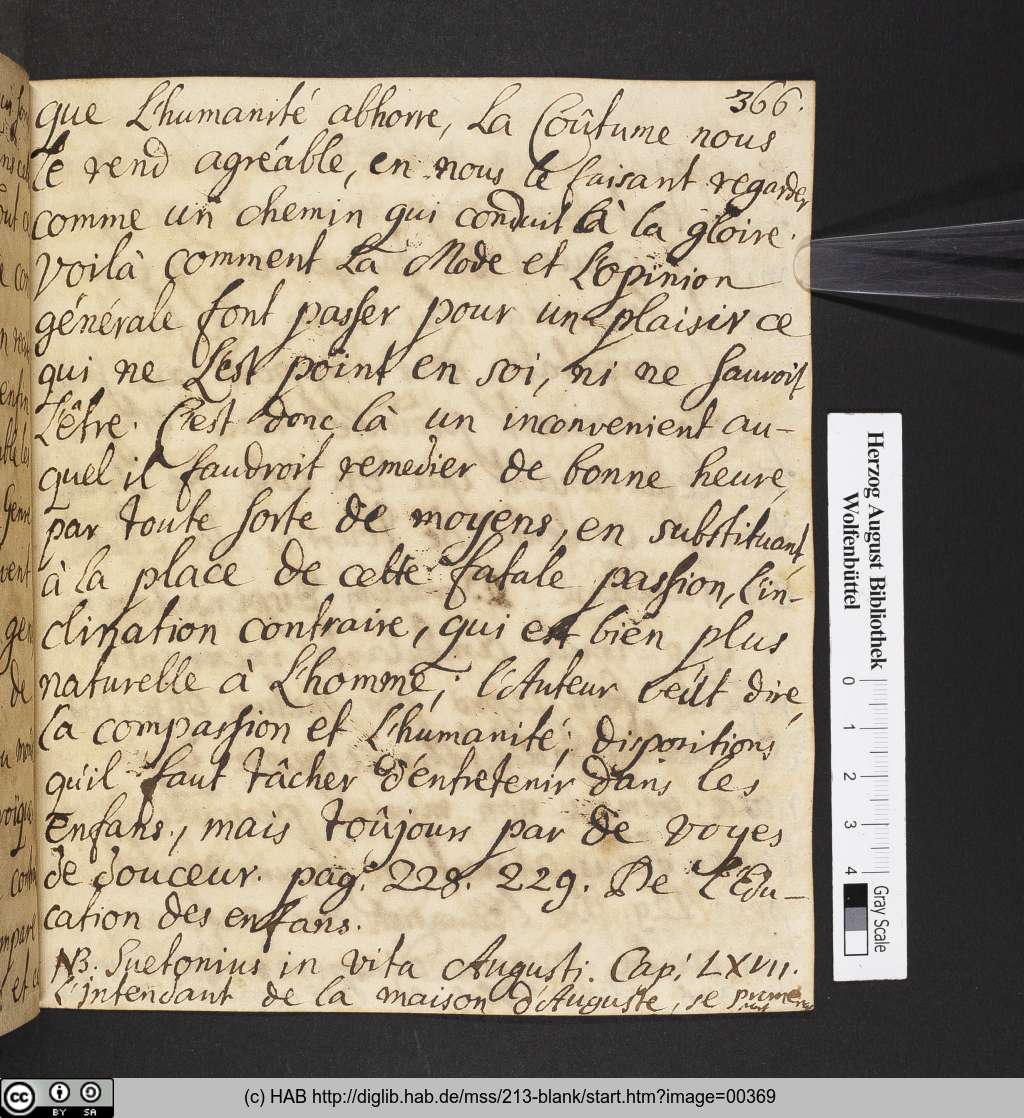 366.
que L'humanité abhorre, La Coûtume nous
le rend agréable, en nous le faisant regarder
comme un chemin qui conduit à la gloire.
Voilà comment La Mode et L'opinion
générale font passer pour un plaisir ce
qui ne L'est point en soi, ni ne sauroit
L'être. C'est donc là un inconvenient au-
quel il faudroit remedier de bonne heure,
par toute sorte de moyens, en substituant
à la place de cette fatale passion, l'in-
clination contraire, qui est bien plus
naturelle à L'homme; l'Auteur veut dire,
La compassion et L'humanité; dispositions
qu'il faut tâcher d'entretenir dans les
Enfans, mais toûjours par de voyes
de douceur. pag. 228. 229. De l'Edu-
cation des enfans.
NB. Suetonius in vita Augusti. Cap. LXVII.
L'intendant de la maison d'Auguste, se
Herzog August Bibliothek
Wolfenbüttel
0 1 2 3 4
Gray Scale
(c) HAB http://diglib.hab.de/mss/213-blank/start.htm?image=00369
cc BY SA